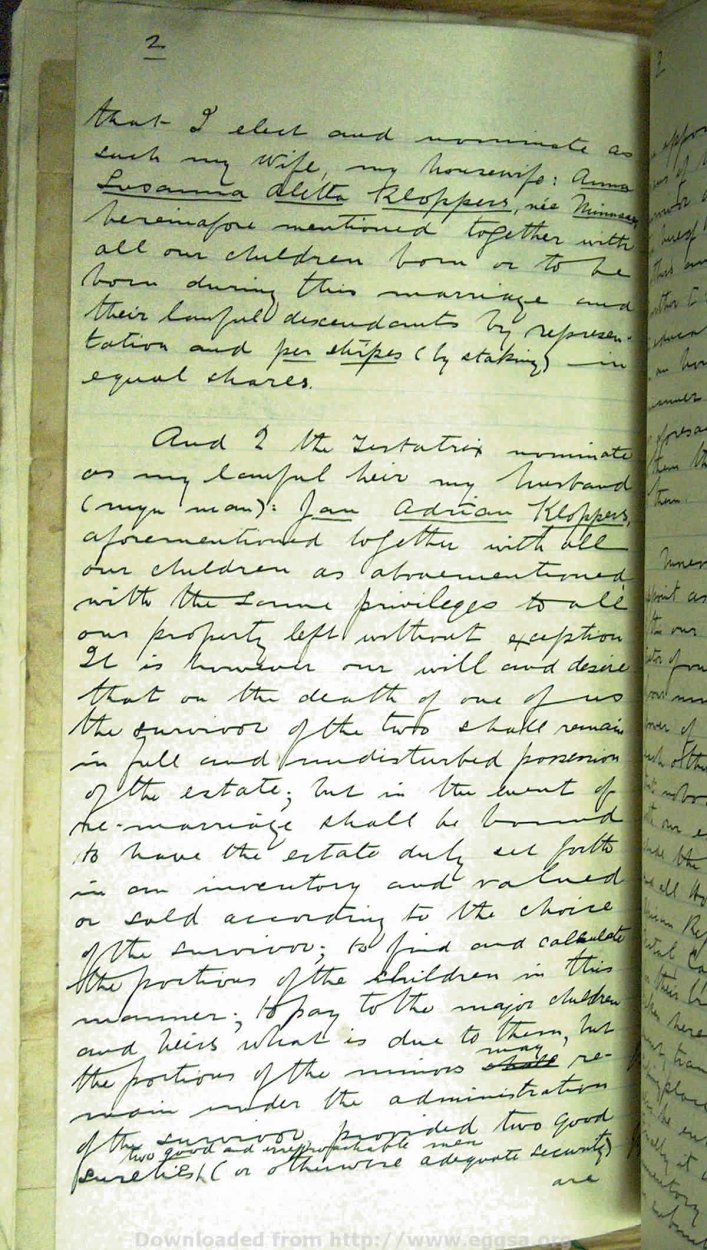 2
that I elect and nominate as
such my wife, my housewife: Anna
Susanna Aletta Kloppers, née
hereinafore mentioned together with
all our children born or to be
born during this marriage and
their lawful descendants by represen-
tation and per stirpes (by staking) in
equal shares.
And I the Testatrix nominate
as my lawful heir my husband
(myn man): Jan Adrian Kloppers,
aforementioned together with all
our children as abovementioned
with the same privileges to all
our property left without exception
It is however our will and desire
that on the death of one of us
the survivor of the two shall remain
in full and undisturbed possession
of the estate; but in the event of
re-marriage shall be bound
to have the estate duly set forth
in an inventory and valued
or sold according to the choice
of the survivor; to find and calculate
the portions of the children in this
manner; to pay to the major children
and heirs what is due to them, but
the portions of the minors shall may re-
main under the administration
of the survivor provided two good
two good and irreproachable men
sureties (or otherwise adequate security)
are
Downloaded from http://www.eggsa.org